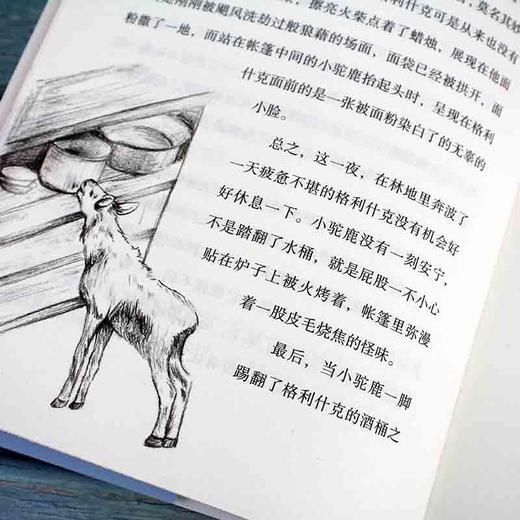 ，莫名其妙
，擦亮火柴点着了蜡烛，展现在他面
刚刚被飓风洗劫过般狼藉的场面，面袋已经被拱开，面
粉撒了一地，而站在帐篷中间的小驼鹿抬起头时，呈现在格利
什克面前的是一张被面粉染白了的无辜的
小脸。
总之，这一夜，在林地里奔波了
一天疲惫不堪的格利什克没有机会好
好休息一下。小驼鹿没有一刻安宁，
不是踏翻了水桶，就是屁股一不小心
贴在炉子上被火烤着，帐篷里弥漫
着一股皮毛烧焦的怪味。
最后，当小驼鹿一脚
踢翻了格利什克的酒桶之